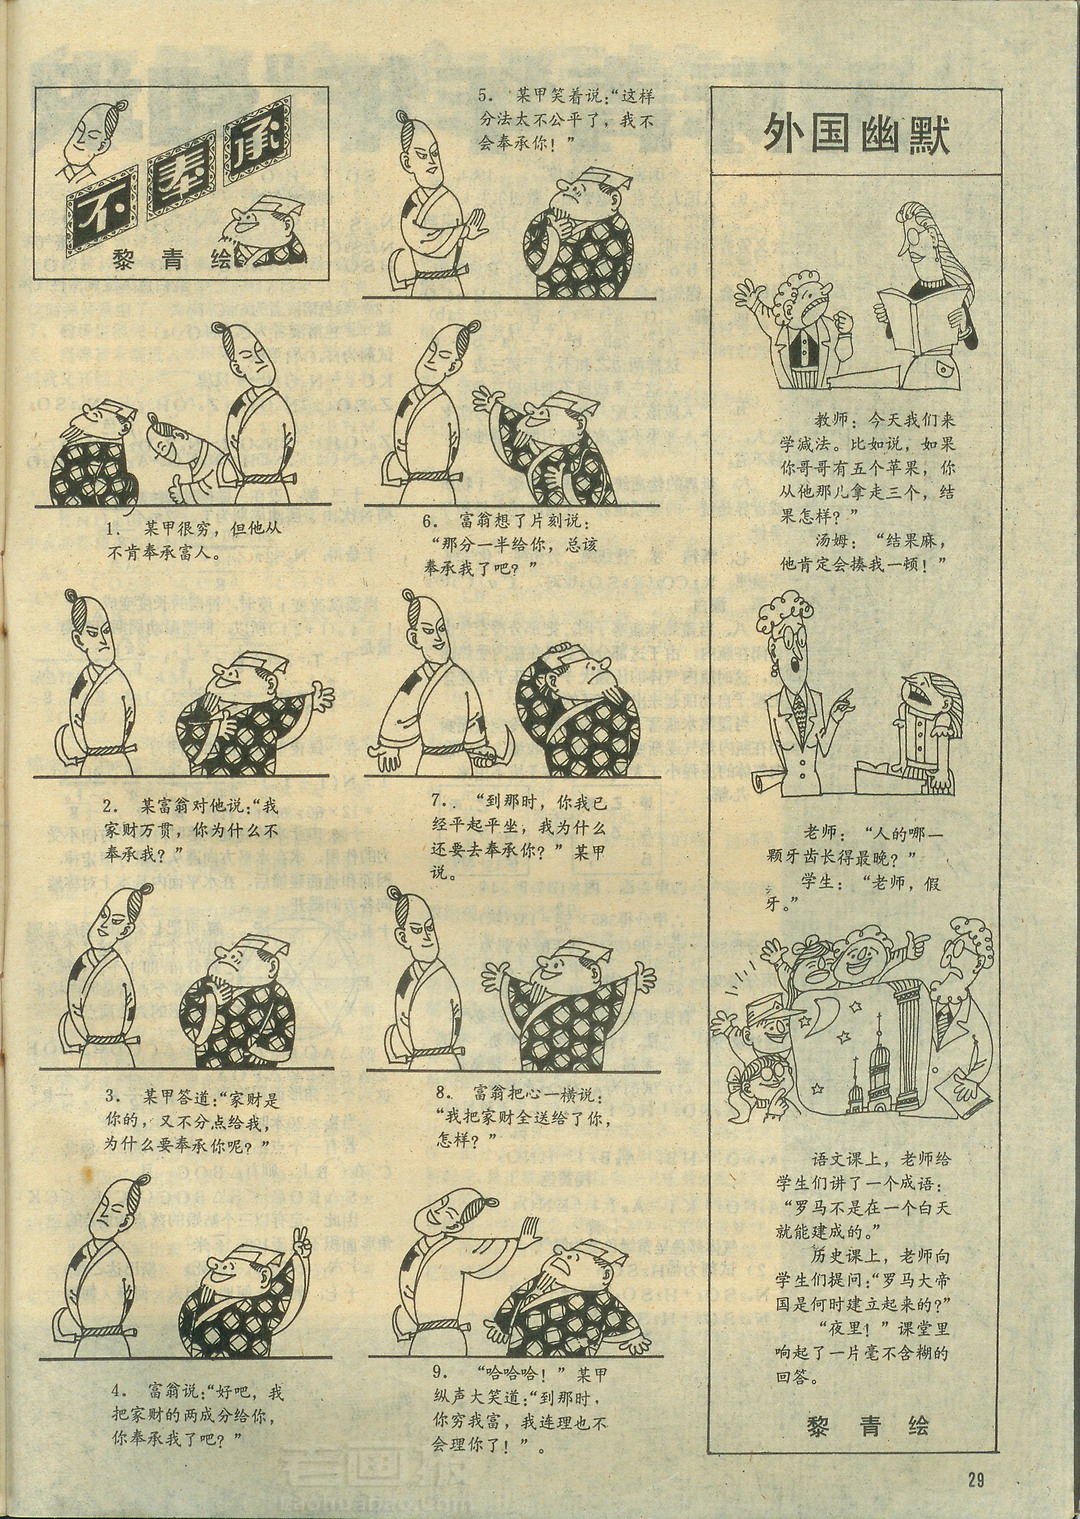 不奉承
黎青绘
1. 某甲很穷，但他从
不肯奉承富人。
2. 某富翁对他说：“我
家财万贯，你为什么不
奉承我？”
3. 某甲答道：“家财是
你的，又不分点给我，
为什么要奉承你呢？”
4. 富翁说：“好吧，我
把家财的两成分给你，
你奉承我了吧？”
5. 某甲笑着说：“这样
分法太不公平了，我不
会奉承你！”
6. 富翁想了片刻说：
“那分一半给你，总该
奉承我了吧？”
7. “到那时，你我已
经平起平坐，我为什么
还要去奉承你？”某甲
说。
8. 富翁把心一横说：
“我把家财全送给了你，
怎样？”
9. “哈哈哈！”某甲
纵声大笑道：“到那时，
你穷我富，我连理也不
会理你了！”。
外国幽默
教师：今天我们来
学减法。比如说，如果
你哥哥有五个苹果，你
从他那儿拿走三个，结
果怎样？”
汤姆：“结果麻，
他肯定会揍我一顿！”
老师：“人的哪一
颗牙齿长得最晚？”
学生：“老师，假
牙。”
语文课上，老师给
学生们讲了一个成语：
“罗马不是在一个白天
就能建成的。”
历史课上，老师向
学生们提问：“罗马大帝
国是何时建立起来的？”
“夜里！”课堂里
响起了一片毫不含糊的
回答。
黎青绘
29